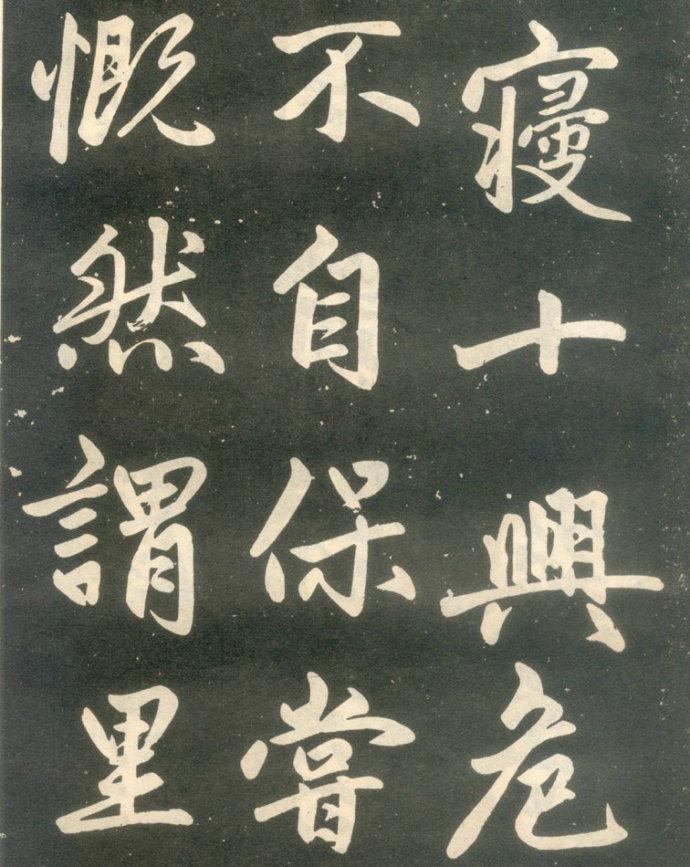 寢十興危
不自保嘗
慨然謂里